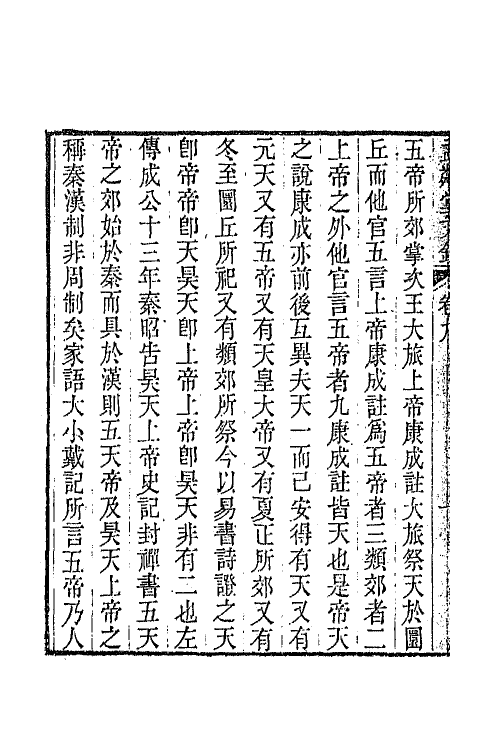 五帝所郊掌次王大旅上帝康成註大旅祭天於圜
丘而他官五言上帝康成註爲五帝者三類郊者二
上帝之外他官言五帝者九康成註皆天也是帝天
之說康成亦前後互異夫天一而已安得有天又有
元天又有五帝又有天皇大帝又有夏正所郊又有
冬至圜丘所祀又有類郊所祭今以易書詩證之天
卽帝帝卽天昊天卽上帝上帝卽昊天非有二也左
傳成公十三年秦昭告昊天上帝史記封禪書五天
帝之郊始於秦而具於漢則五天帝及昊天上帝之
稱秦漢制非周制矣家語大小戴記所言五帝乃人